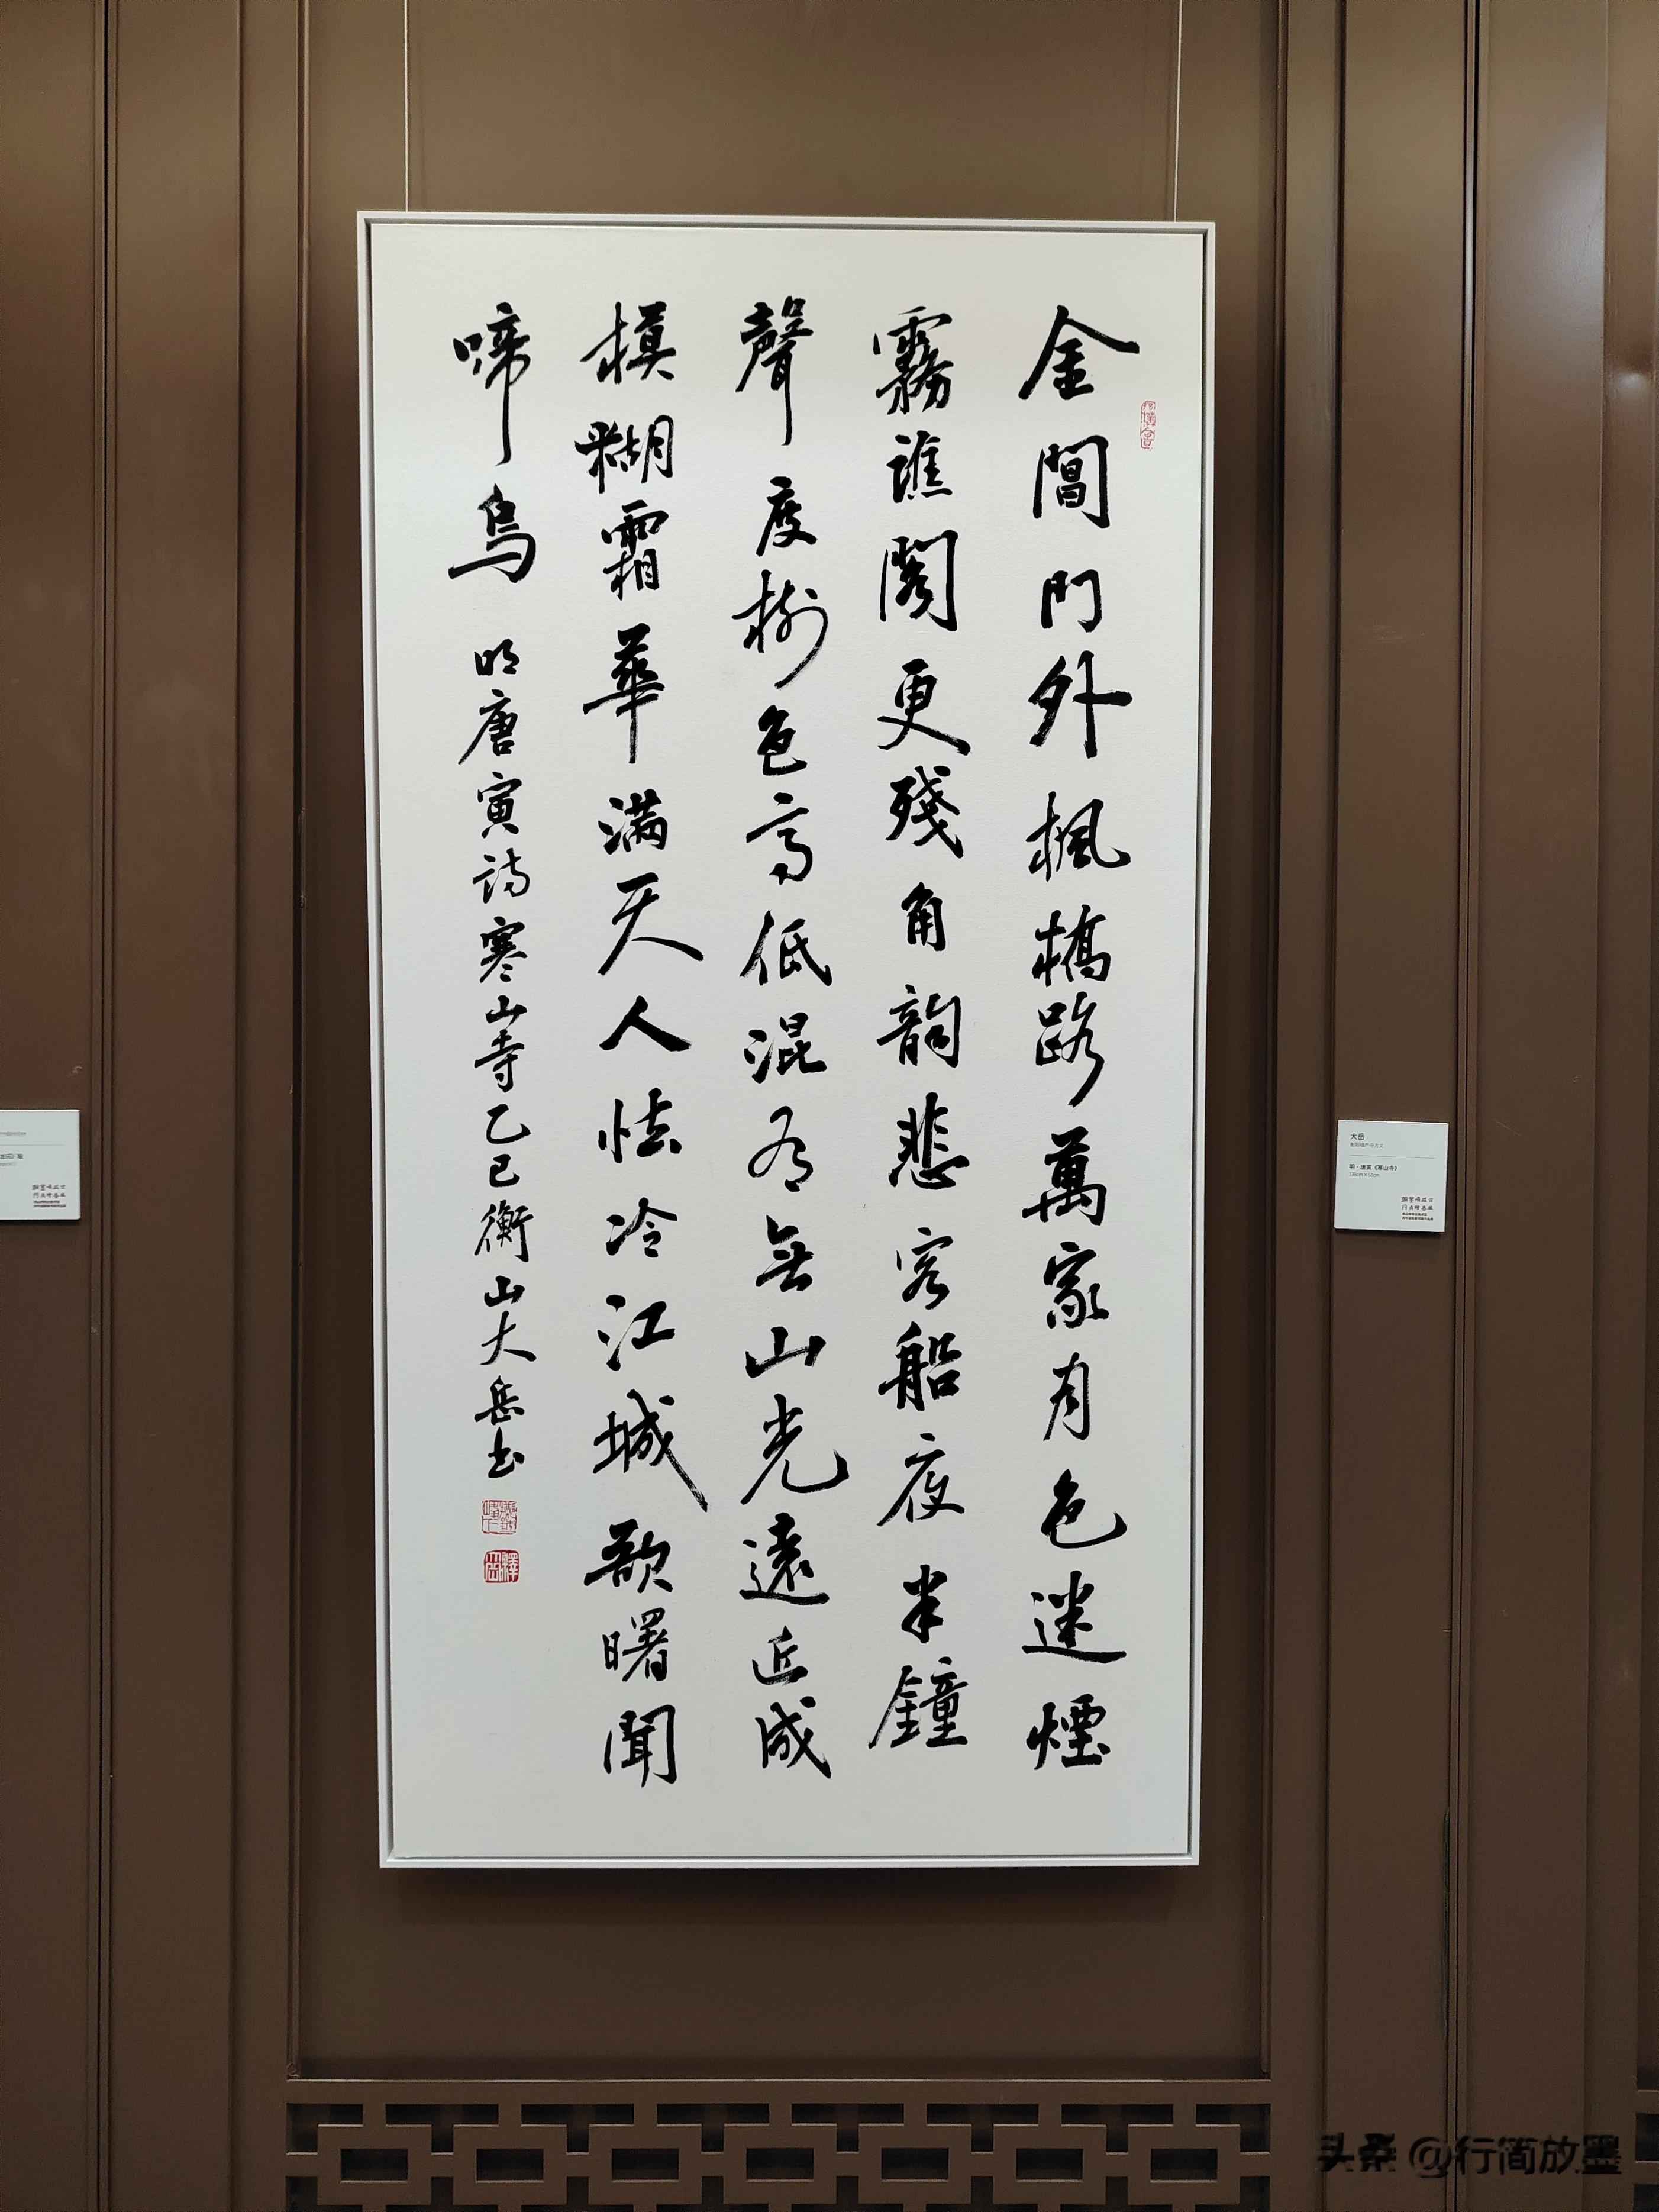 金閶門外楓橋路萬家月色迷煙
霧譙閣更殘角韻悲客船夜半鐘
聲度樹色高低混有無山光遠近成
模糊霜華满天人怯冷江城欲曙聞
啼烏
明唐寅诗寒山寺乙巳衡山大岳书
大岳
明·唐寅《寒山寺》
头条 @行简放墨